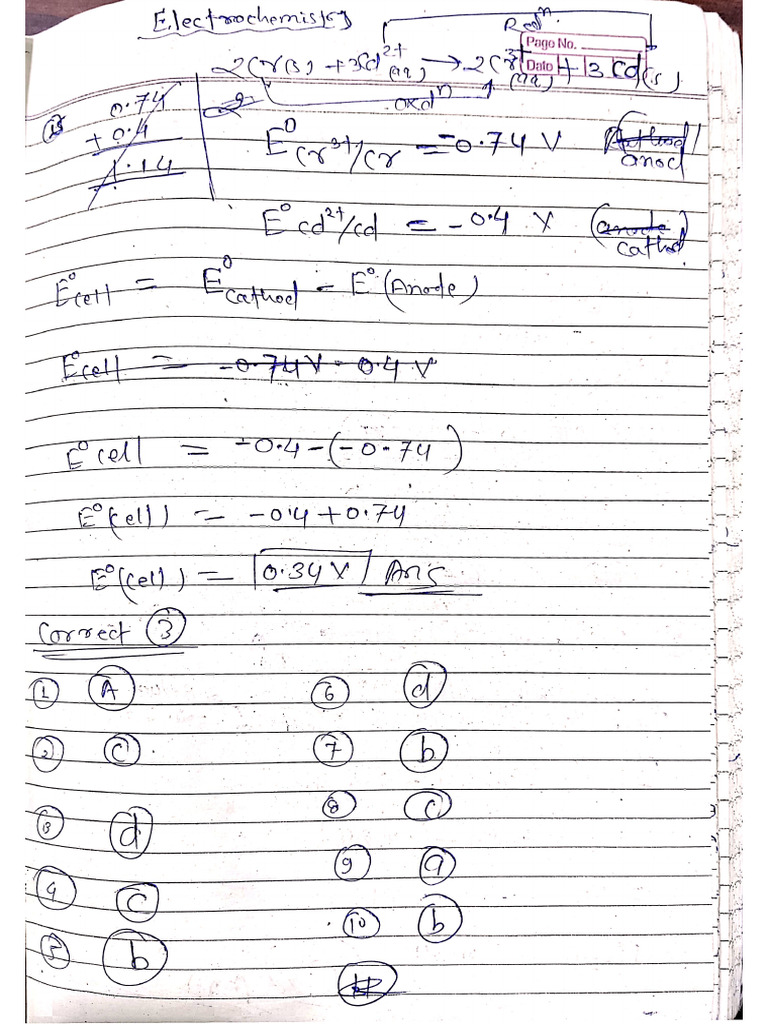 Electrochemistry
Redⁿ.
Page No.
Date
2Cr(s) + 3Cd²⁺(aq) → 2Cr³⁺(aq) + 3Cd(s)
oxdⁿ
0.74
+ 0.4
1.14
E⁰ Cr³⁺/Cr = -0.74 V anod
E⁰ Cd²⁺/Cd = -0.4 V (anode) cathod
E⁰cell = E⁰Cathod - E⁰(Anode)
E⁰cell = -0.74V - 0.4V
E⁰cell = -0.4-(-0.74)
E⁰(cell) = -0.4+0.74
E⁰(cell) = 0.34V Ans
Correct ③
① A ⑥ d
② c ⑦ b
⑧ c
③ d
⑨ a
④ c
⑩ b
⑤ b